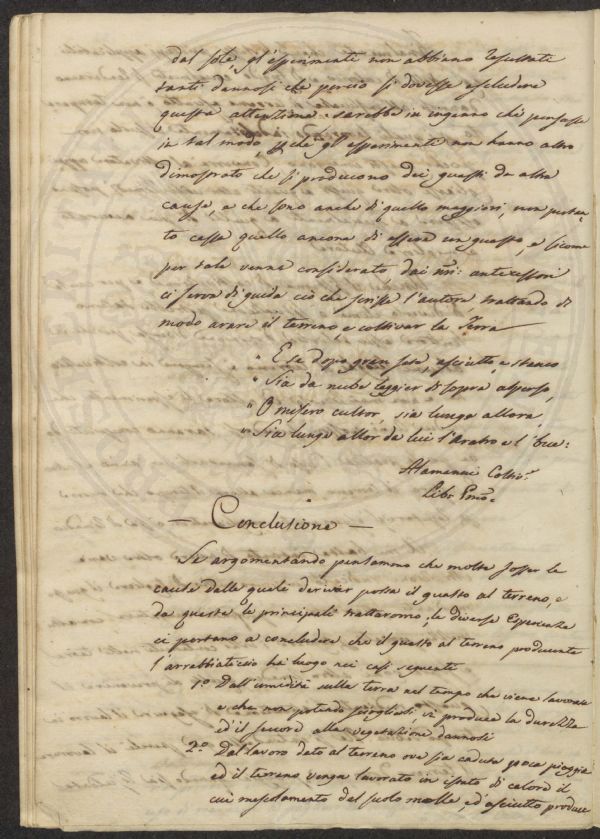 dal sole, gl'esperimenti non abbiano resultati
tanti dannosi che perciò si dovesse escludere
questa attenzione sarebbe in inganno chi pensasse
in tal modo, che gl'esperimenti non hanno altro
dimostrato che si producono dei guasti da altra
causa, e che sono anche di quello maggiori, non pertan-
to cessa quello ancora di essere un guasto, e siccome
per tale venne considerato, dai nri: antecessori
ci serva di guida ciò che scrisse l'autore trattando di
modo arare il terreno, e coltivar la Terra
" E se dopo gran sete, asciutto, e stanco
" Sia da nube leggier di sopra asperso,
" O misero cultor, sia lunge allora,
" Sia lunge allor da lui l'Aratro e l'bue:
Alamanni Coltiv.e
Libr Pmo.
— Conclusione —
Se argomentando pensammo che molte fosser le
cause dalle quali derivar possa il guasto al terreno, e
da queste le principali trattarono, le diverse Esperienze
ci portano a concludere che il guasto al terreno producente
l'arrabbiaticcio ha luogo nei casi seguenti
1.o Dall'umidità sulla terra nel tempo che viene lavorata
e che non potendo sciogliersi, vi produce la durezza
ed il seccore alla vegetazione dannosi
2.o Dal lavoro dato al terreno ove sia caduta poca pioggia
ed il terreno venga lavorato in istato di calore il
cui mescolamento del suolo molle, ed asciutto produce